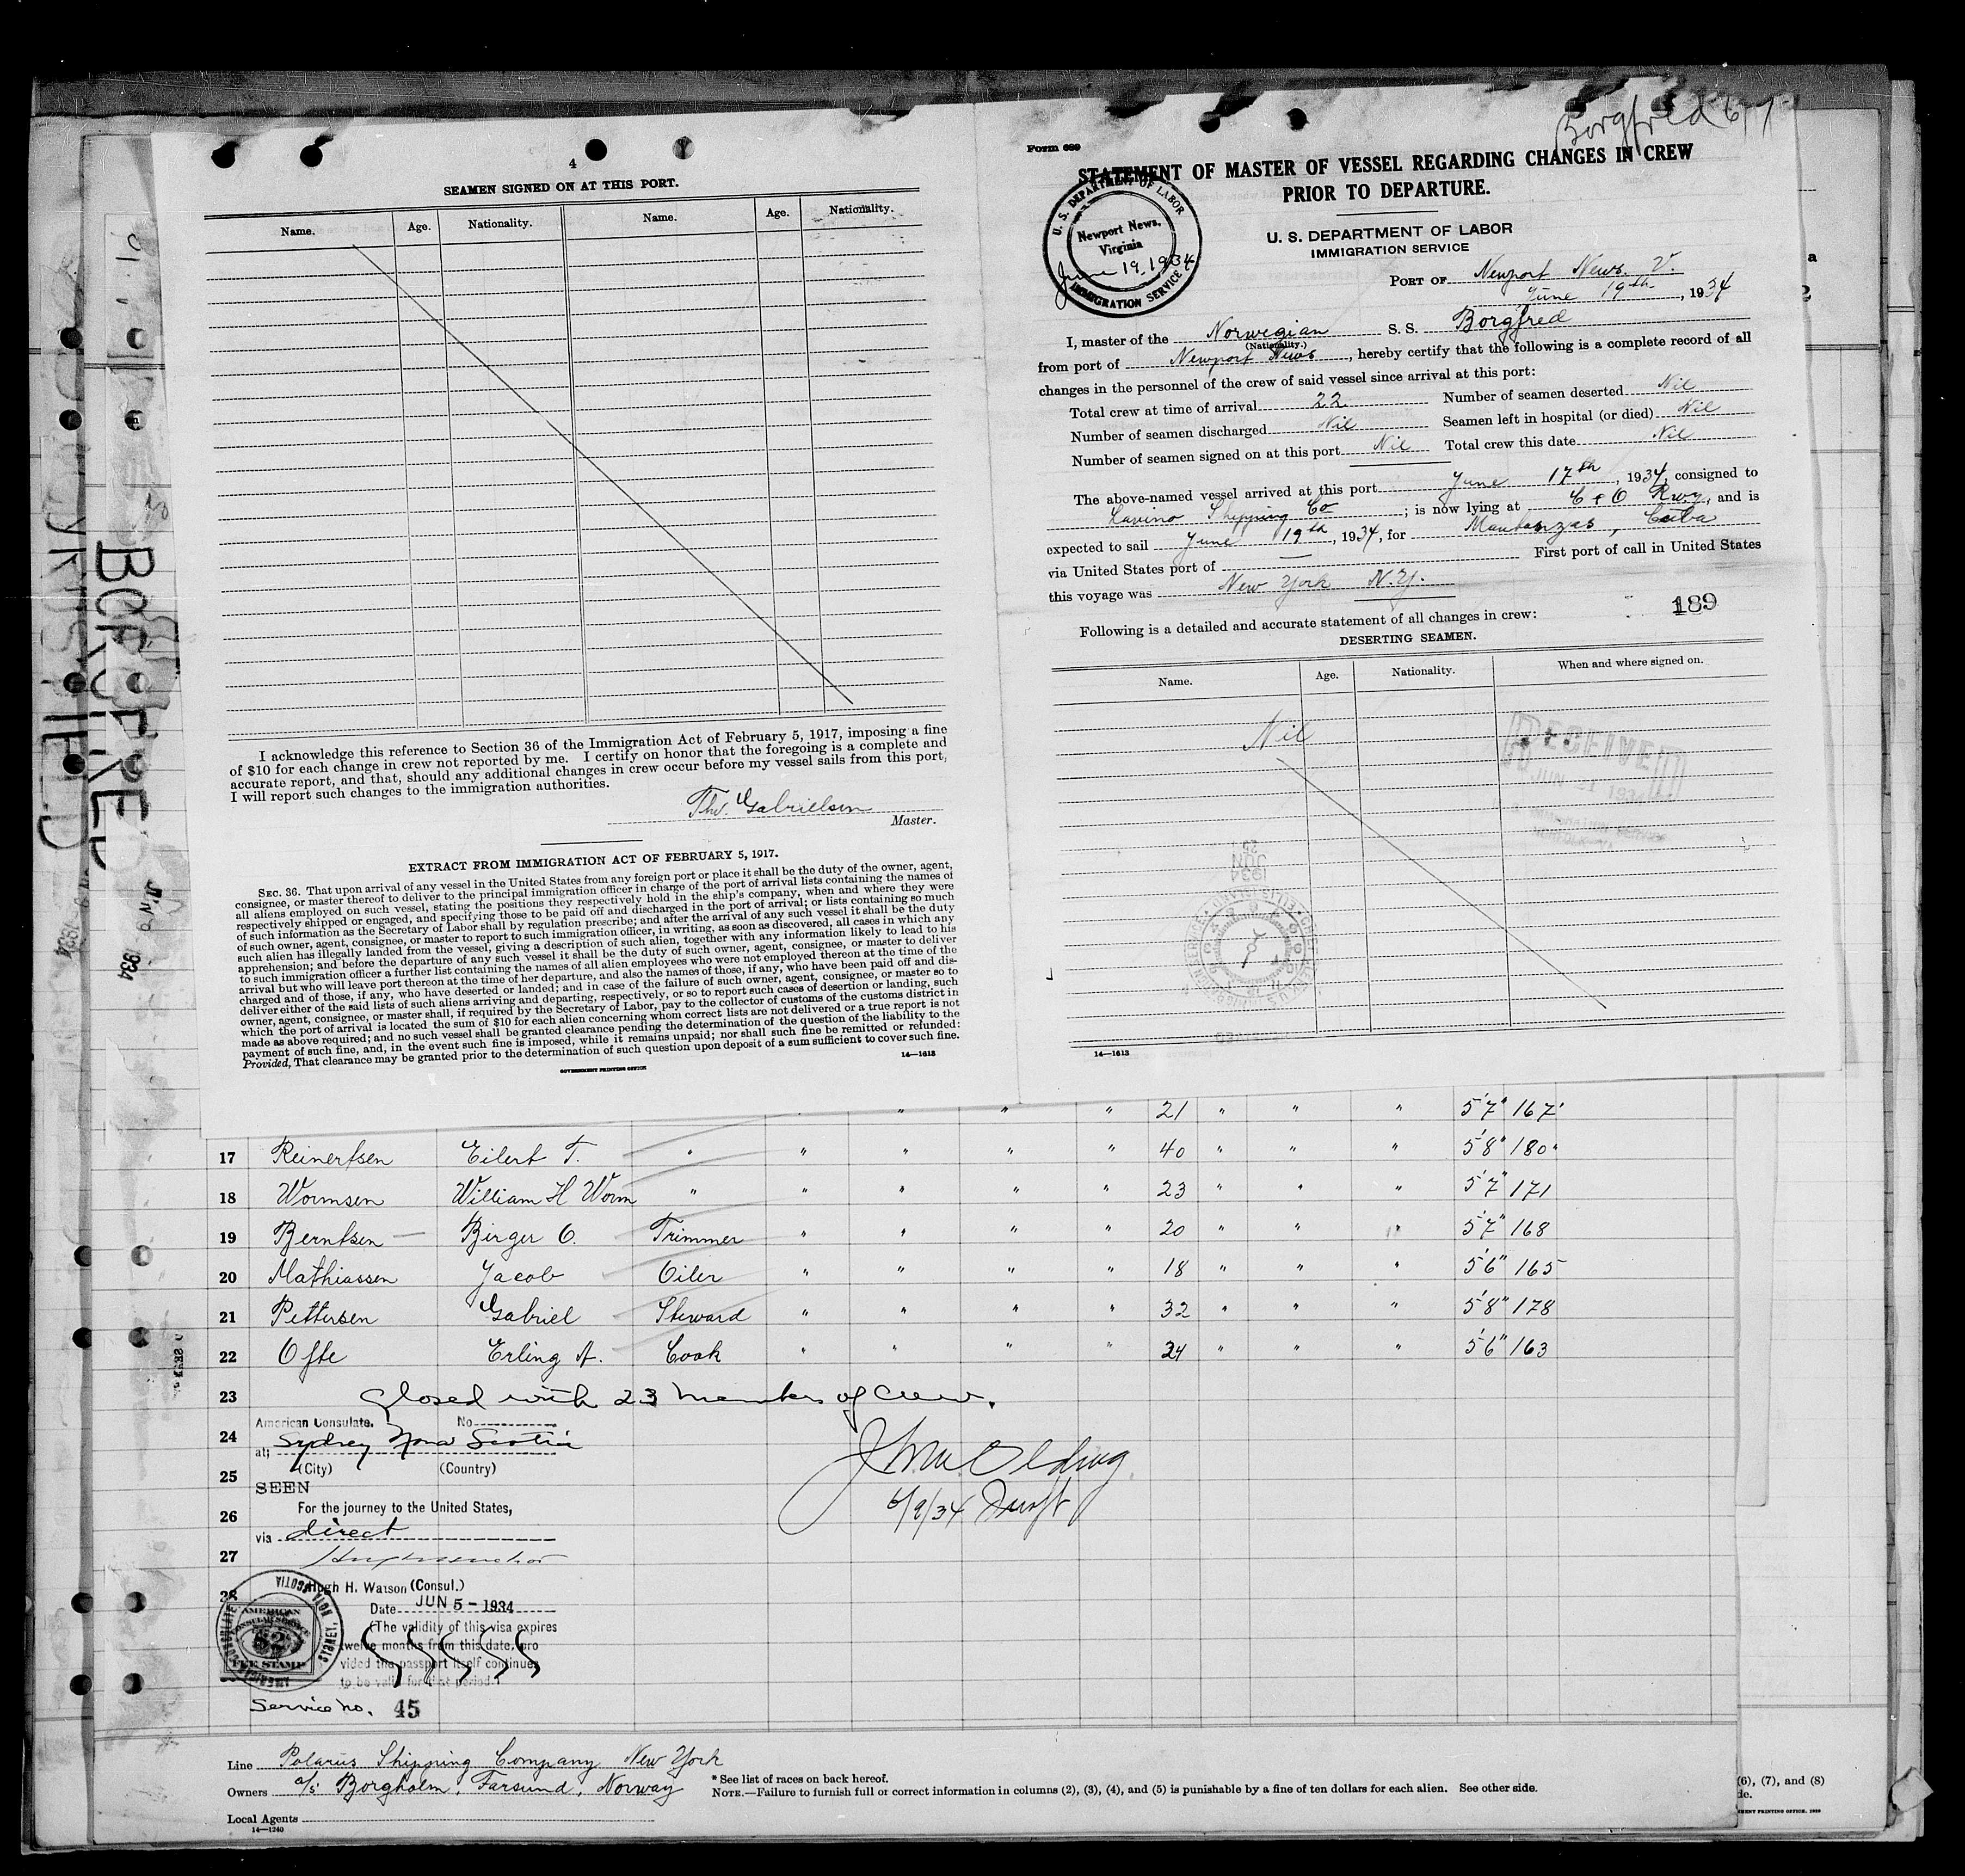 4
SEAMEN SIGNED ON AT THIS PORT.
Name. Age. Nationality. Name. Age. Nationality.
I acknowledge this reference to Section 36 of the Immigration Act of February 5, 1917, imposing a fine
of $10 for each change in crew not reported by me. I certify on honor that the foregoing is a complete and
accurate report, and that, should any additional changes in crew occur before my vessel sails from this port,
I will report such changes to the immigration authorities.
Thv. Gabrielsen
Master.
EXTRACT FROM IMMIGRATION ACT OF FEBRUARY 5, 1917.
SEC. 36. That upon arrival of any vessel in the United States from any foreign port or place it shall be the duty of the owner, agent,
consignee, or master thereof to deliver to the principal immigration officer in charge of the port of arrival lists containing the names of
all aliens employed on such vessel, stating the positions they respectively hold in the ship's company, when and where they were
respectively shipped or engaged, and specifying those to be paid off and discharged in the port of arrival; or lists containing so much
of such information as the Secretary of Labor shall by regulation prescribe; and after the arrival of any such vessel it shall be the duty
of such owner, agent, consignee, or master to report to such immigration officer, in writing, as soon as discovered, all cases in which any
such alien has illegally landed from the vessel, giving a description of such alien, together with any information likely to lead to his
apprehension; and before the departure of any such vessel it shall be the duty of such owner, agent, consignee, or master to deliver
to such immigration officer a further list containing the names of all alien employees who were not employed thereon at the time of the
arrival but who will leave port thereon at the time of her departure, and also the names of those, if any, who have been paid off and dis-
charged and of those, if any, who have deserted or landed; and in case of the failure of such owner, agent, consignee, or master so to
deliver either of the said lists of such aliens arriving and departing, respectively, or so to report such cases of desertion or landing, such
owner, agent, consignee, or master shall, if required by the Secretary of Labor, pay to the collector of customs of the customs district in
which the port of arrival is located the sum of $10 for each alien concerning whom correct lists are not delivered or a true report is not
made as above required; and no such vessel shall be granted clearance pending the determination of the question of the liability to the
payment of such fine, and, in the event such fine is imposed, while it remains unpaid; nor shall such fine be remitted or refunded:
Provided, That clearance may be granted prior to the determination of such question upon deposit of a sum sufficient to cover such fine.
14—1613
GOVERNMENT PRINTING OFFICE
Borgfred 6/7
Form 689
STATEMENT OF MASTER OF VESSEL REGARDING CHANGES IN CREW
PRIOR TO DEPARTURE.
U. S. DEPARTMENT OF LABOR
IMMIGRATION SERVICE
U. S. DEPARTMENT OF LABOR
Newport News,
Virginia
June 19, 1934
IMMIGRATION SERVICE
PORT OF Newport News. V.
June 19th, 1934
I, master of the Norwegian S. S. Borgfred
(Nationality.)
from port of Newport News, hereby certify that the following is a complete record of all
changes in the personnel of the crew of said vessel since arrival at this port:
Total crew at time of arrival 22. Number of seamen deserted Nil
Number of seamen discharged Nil Seamen left in hospital (or died) Nil
Number of seamen signed on at this port Nil Total crew this date Nil
The above-named vessel arrived at this port June 17th, 1934, consigned to
Lavino Shipping Co; is now lying at C & O Rwy, and is
expected to sail June 19th, 1934, for Mantanzas, Cuba
via United States port of — First port of call in United States
this voyage was New York N.Y.
189
Following is a detailed and accurate statement of all changes in crew:
DESERTING SEAMEN.
Name. Age. Nationality. When and where signed on.
Nil
RECEIVED
JUN 21 1934
JUN
1934
14—1613
BORGFRED
JUN 9 1934
" " " 21 " " " 5'7" 167
17 Reinertsen Eilert T. " " " " " 40 " " " 5'8" 180
18 Wormsen William H Worm " " " " " 23 " " " 5'7" 171
19 Berntsen Birger O. Trimmer " " " " 20 " " " 5'7" 168
20 Mathiassen Jacob Oiler " " " " 18 " " " 5'6" 165
21 Pettersen Gabriel Steward " " " " 32 " " " 5'8" 178
22 Ofte Erling A. Cook " " " " 24 " " " 5'6" 163
23 Closed with 23 members of Crew.
American Consulate. No
24 at; Sydney Nova Scotia
(City) (Country)
25
SEEN
For the journey to the United States,
26
via direct
27
Hugh H. Watson (Consul.)
28
Date JUN 5 - 1934
(The validity of this visa expires
twelve months from this date, pro
vided the passport itself continues
to be valid for that period.)
AMERICAN
CONSULAR SERVICE
$2
FEE STAMP
Service no. 45
6/9/34
Line Polarus Shipping Company New York
Owners A/S Borgholm, Farsund, Norway
Local Agents
14—1240
* See list of races on back hereof.
NOTE.—Failure to furnish full or correct information in columns (2), (3), (4), and (5) is punishable by a fine of ten dollars for each alien. See other side.
(6), (7), and (8)